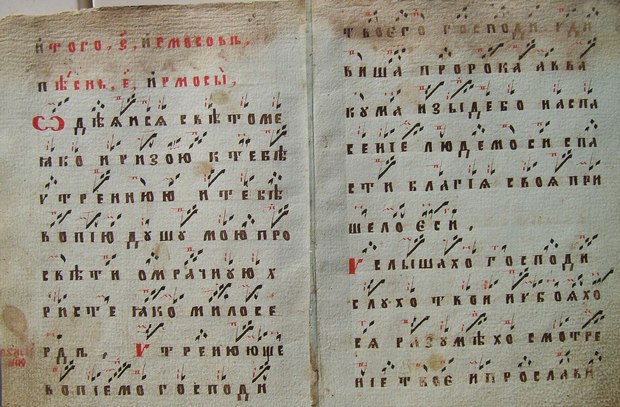 и того, ѕ҃, ирмосовъ,
пѣснь, е҃, ирмосы,
Ѡдѣѧйсѧ свѣтоме
ꙗко и ризою к тебѣ
утренюю и тебѣ
вопію душу мою про
свѣти омрачную х
ристе ꙗко милосе
рдъ, Утренююще
вопіемо господи
твоего господи
вища пророка авва
кума изыде бо на спа
сеніе людемо си спа
сти благіѧ своѧ при
шело єси,
Услышахо господи
слухо твои и убоѧхо
сѧ разумѣхо смотре
ніе твоє и прослави